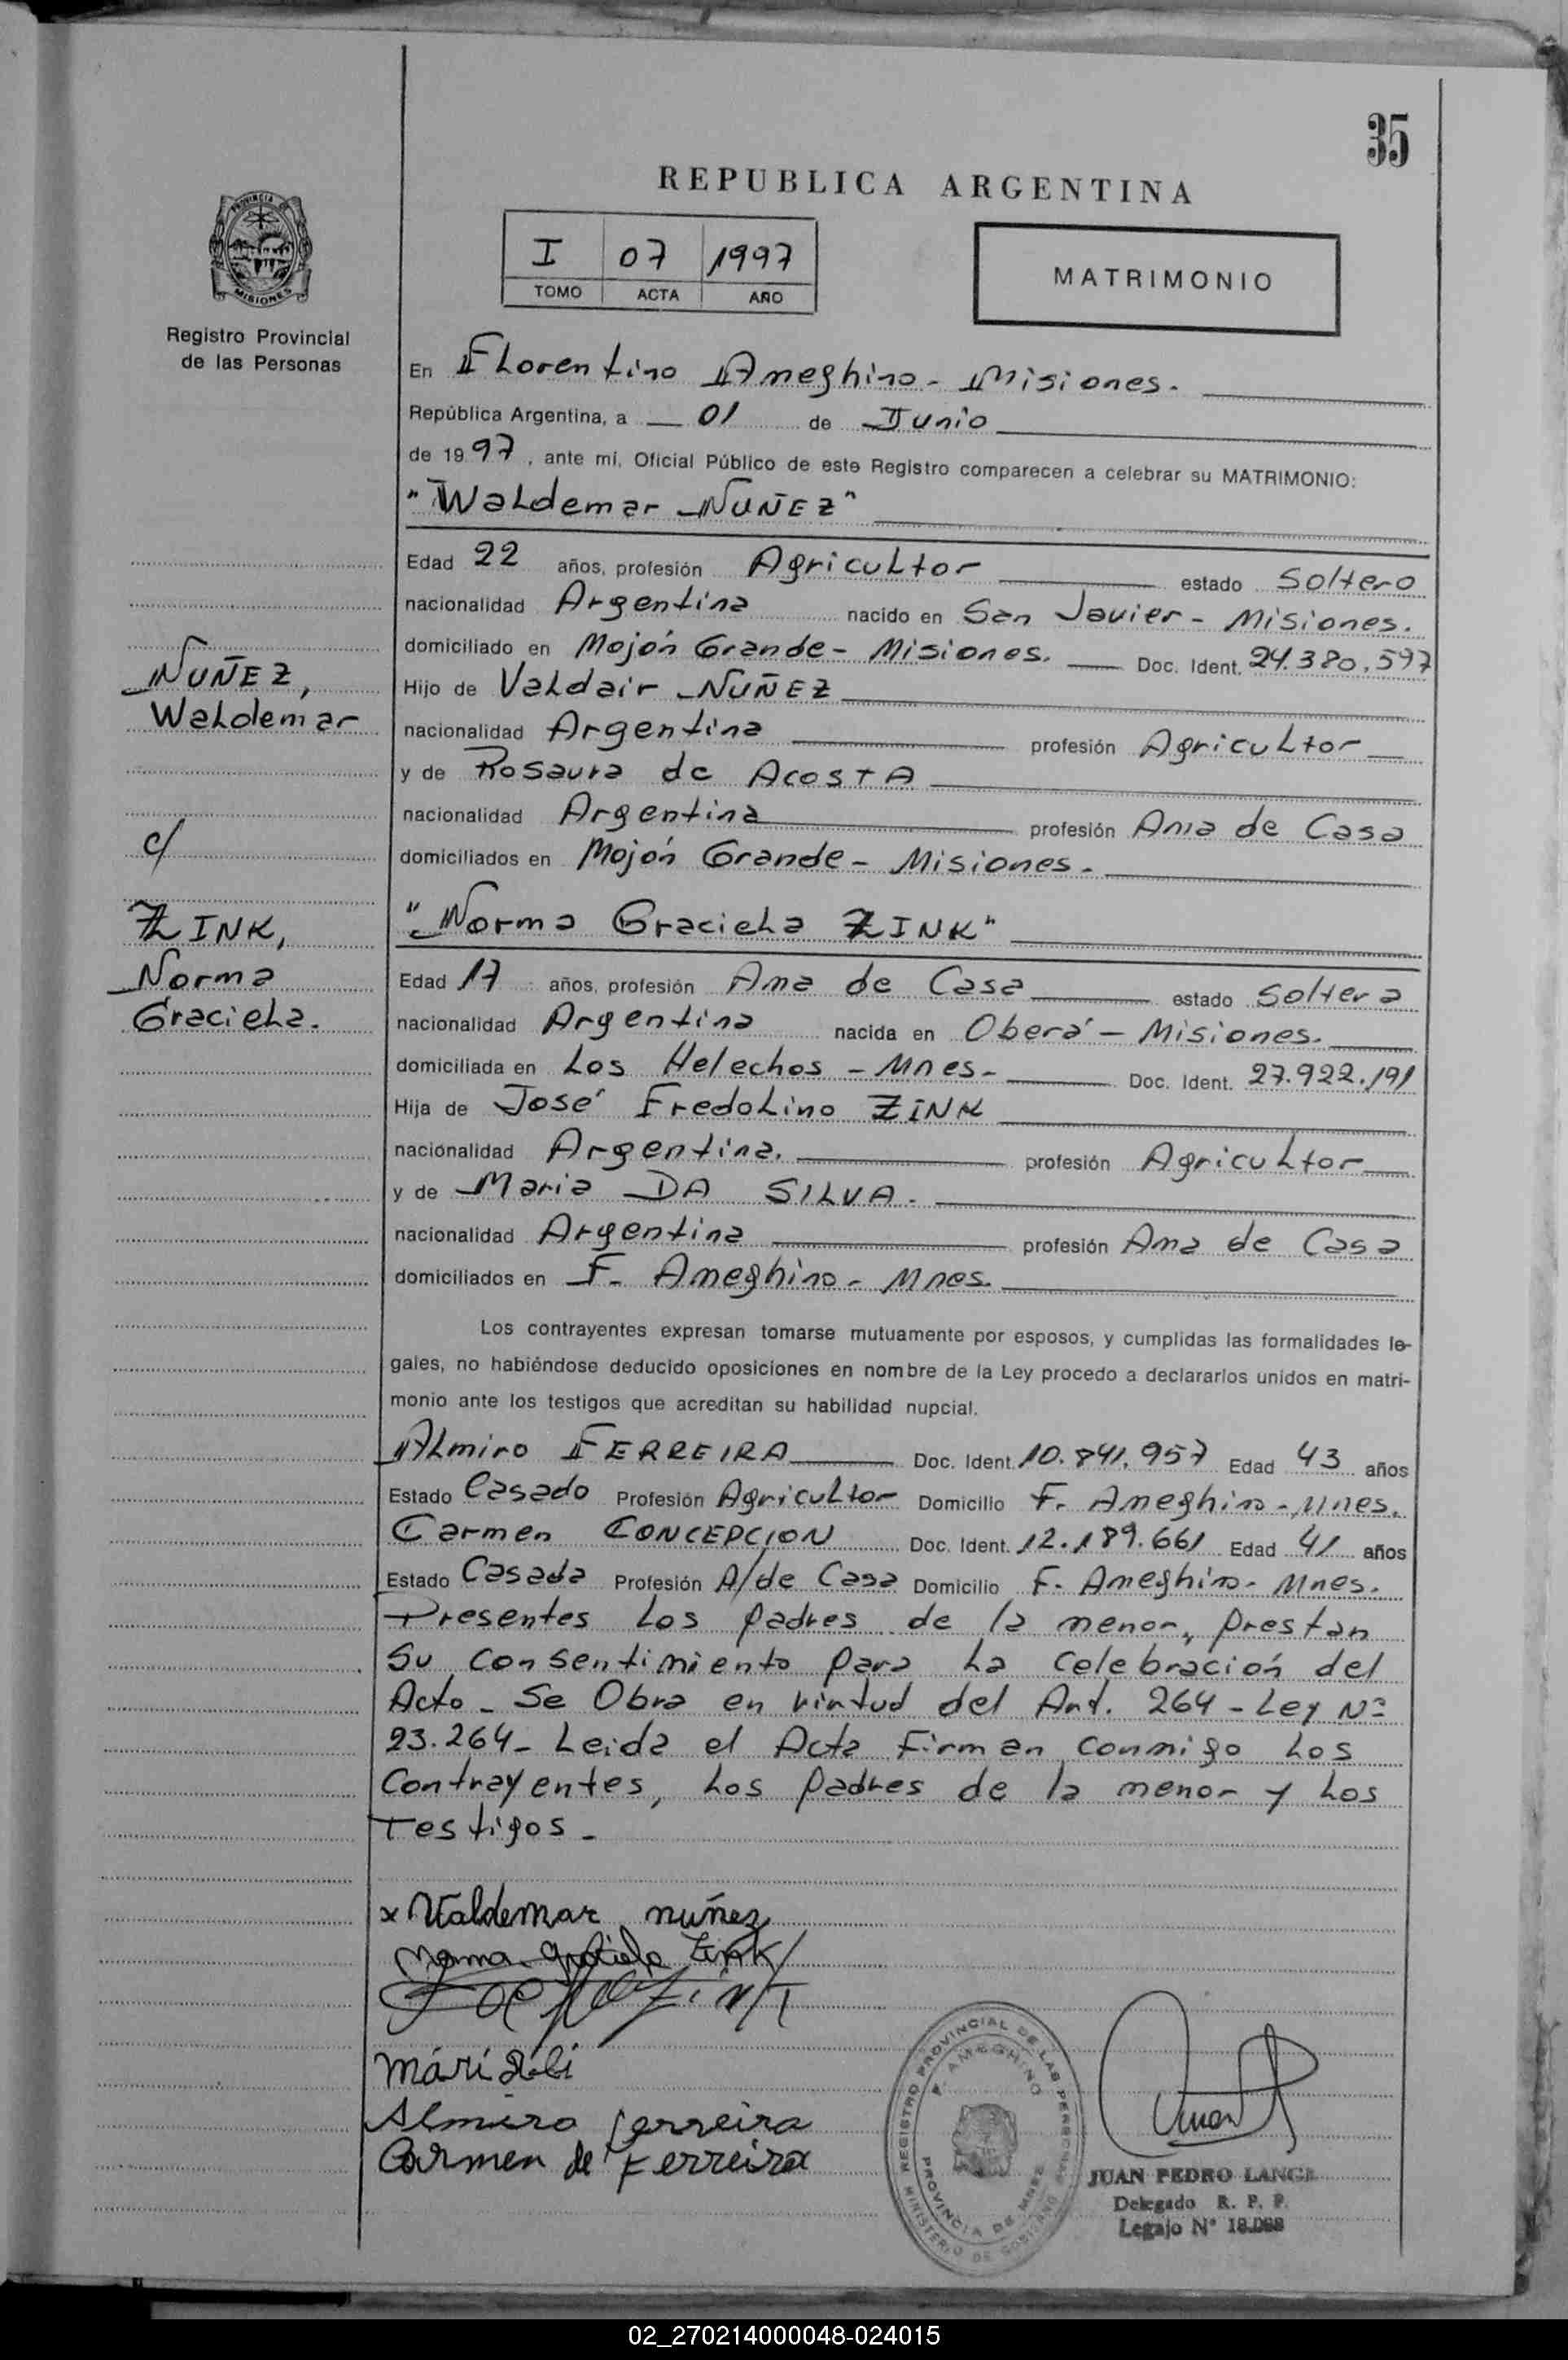 35
REPUBLICA ARGENTINA
I 07 1997
TOMO ACTA AÑO
MATRIMONIO
PROVINCIA DE
MISIONES
Registro Provincial
de las Personas
En Florentino Ameghino - Misiones.
República Argentina, a 01 de Junio
de 1997, ante mí, Oficial Público de este Registro comparecen a celebrar su MATRIMONIO:
"Waldemar NUÑEZ"
Edad 22 años, profesión Agricultor estado Soltero
nacionalidad Argentina nacido en San Javier - Misiones.
domiciliado en Mojón Grande - Misiones. Doc. Ident. 24.380.597
NUÑEZ,
Waldemar
Hijo de Valdair NUÑEZ
nacionalidad Argentina profesión Agricultor
y de Rosaura de ACOSTA
nacionalidad Argentina profesión Ama de Casa
c/
domiciliados en Mojón Grande - Misiones.
ZINK,
Norma
Graciela.
"Norma Graciela ZINK"
Edad 17 años, profesión Ama de Casa estado Soltera
nacionalidad Argentina nacida en Oberá - Misiones.
domiciliada en Los Helechos - Mnes- Doc. Ident. 27.922.191
Hija de José Fredolino ZINK
nacionalidad Argentina. profesión Agricultor
y de Maria DA SILVA.
nacionalidad Argentina profesión Ama de Casa
domiciliados en F. Ameghino - Mnes.
Los contrayentes expresan tomarse mutuamente por esposos, y cumplidas las formalidades le-
gales, no habiéndose deducido oposiciones en nombre de la Ley procedo a declararlos unidos en matri-
monio ante los testigos que acreditan su habilidad nupcial.
Almiro FERREIRA Doc. Ident. 10.841.957 Edad 43 años
Estado Casado Profesión Agricultor Domicilio F. Ameghino - Mnes.
Carmen CONCEPCION Doc. Ident. 12.189.661 Edad 41 años
Estado Casada Profesión A/de Casa Domicilio F. Ameghino - Mnes.
Presentes los padres de la menor, prestan
su consentimiento para la celebración del
Acto - Se Obra en virtud del Art. 264 - Ley Nº
23.264 - Leida el Acta Firman conmigo los
Contrayentes, los padres de la menor y los
Testigos -
x Valdemar nuñez
Norma graciela Zink
Almiro ferreira
Carmen de Ferreira
REGISTRO PROVINCIAL DE LAS PERSONAS
F. AMEGHINO
PROVINCIA DE MNES
MINISTERIO DE GOBIERNO
JUAN PEDRO LANGE
Delegado R. P. P.
Legajo Nº
02_270214000048-024015